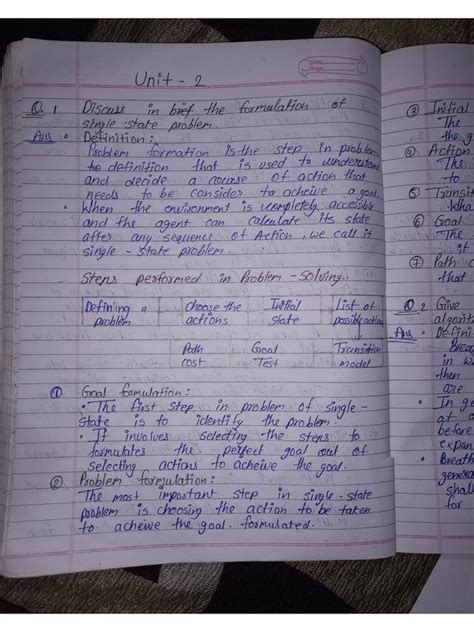 Unit - 2
Q. 1 Discuss in bref the formulation of
single state problem.
Ans • Definition :
Problem formation is the step in problem
to definition that is used to understan
and decide a course of action that
needs to be consider to acheive a goal.
• When the environment is completely accessible
and the agent can calculate its state
after any sequence of Action, we call it
single - state problem.
Steps performed in Problem - Solving.
Defining a choose the Initial List of
problem actions state possible actions
Path Goal Transition
cost Test model
① Goal formulation :
• The first step in problem of single -
state is to identify the problem.
• It involves selecting the steps to
formulates the perfect goal out of
selecting actions to acheive the goal.
② Problem formulation :
The most important step in single - state
problem is choosing the action to be taken
to acheive the goal. formulated.
③ Initial
The
the g
④ Action
The
to
⑤ Transit
Wha
⑥ Goal
The
⑦ Path c
that
Q. 2 Give
algorit
Ans • Defini
Brea
in w
then
are
• In ge
at a
before
expan
• Breath
genera
shall
for